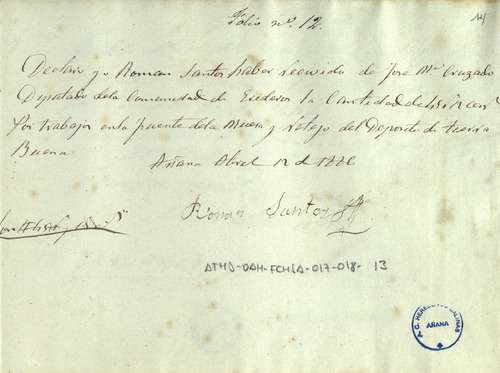 Folio nº. 12.
14
Declaro yo Roman Santos haber recivido de Jose Mª Cruzado
Diputado dela Comunidad de Erederos la Cantidad de
Por trabajos en la fuente dela Muera y retejo del Deposito de tierra
Buena
Añana Abril 12 de 1886
Roman Santos
ATHA-DAH-FCHSA-017-018-13
ARANA